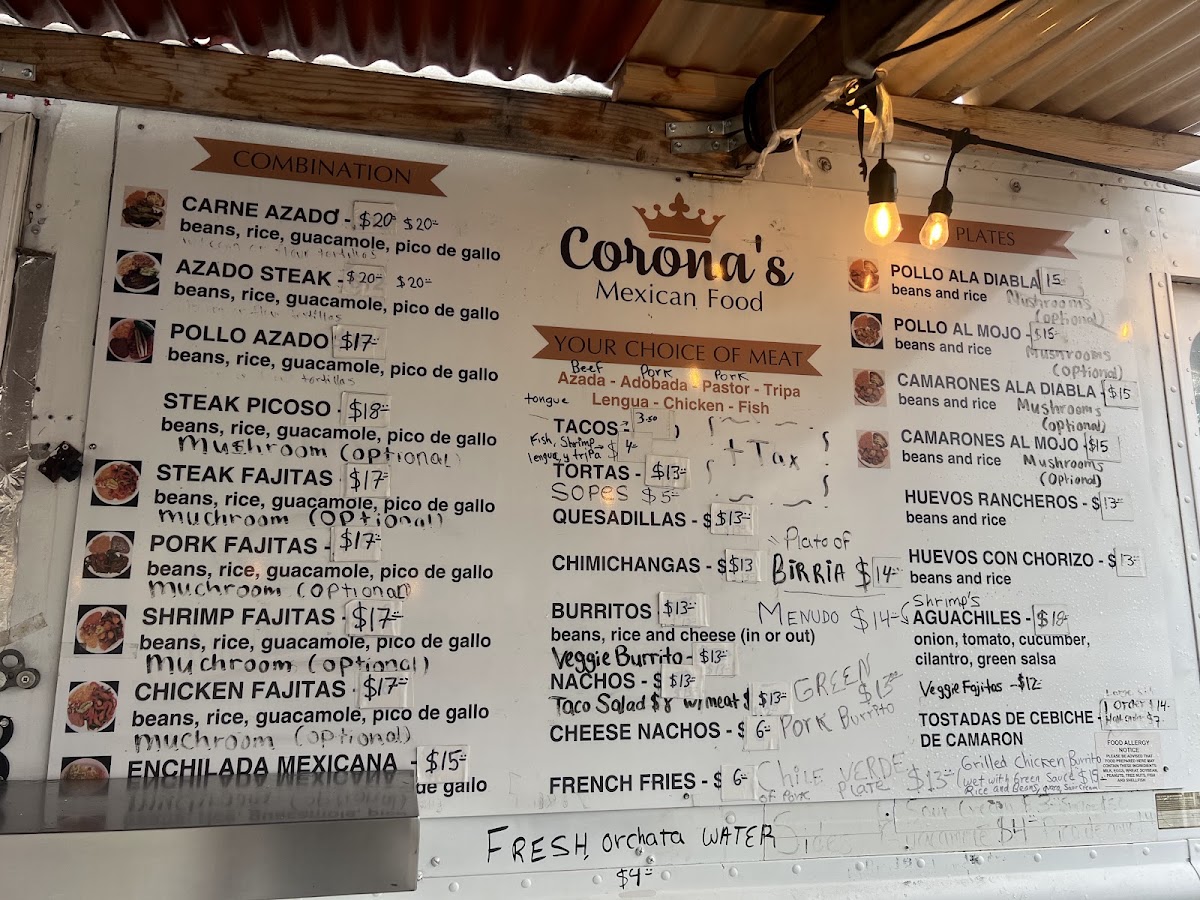 COMBINATION
CARNE AZADO - $20- $20-
beans, rice, guacamole, pico de gallo
AZADO STEAK - $20- $20-
beans, rice, guacamole, pico de gallo
POLLO AZADO $17-
beans, rice, guacamole, pico de gallo
tortillas
STEAK PICOSO - $18-
beans, rice, guacamole, pico de gallo
Mushroom (optional)
STEAK FAJITAS - $17-
beans, rice, guacamole, pico de gallo
muchroom (optional)
PORK FAJITAS - $17-
beans, rice, guacamole, pico de gallo
muchroom (optional)
SHRIMP FAJITAS - $17-
beans, rice, guacamole, pico de gallo
muchroom (optional)
CHICKEN FAJITAS - $17-
beans, rice, guacamole, pico de gallo
muchroom (optional)
ENCHILADA MEXICANA $15-
de gallo
Corona's
Mexican Food
YOUR CHOICE OF MEAT
Beef Pork Pork
Azada - Adobada - Pastor - Tripa
tongue
Lengua - Chicken - Fish
TACOS - 3.50
Fish, Shrimp $ 4-
lengua y tripa
+ Tax
TORTAS - $13-
SOPES $5-
QUESADILLAS - $ $13-
CHIMICHANGAS - $ $13
Plato of
BIRRIA $ 14-
BURRITOS $13-
MENUDO $14-
beans, rice and cheese (in or out)
Veggie Burrito - $13-
NACHOS - $ $13-
Taco Salad $8 w/ meat $ $13-
GREEN $13-
Pork Burrito
CHEESE NACHOS - $ 6-
FRENCH FRIES - $ 6-
CHILE VERDE
of Pork PLATE $13-
PLATES
POLLO ALA DIABLA 15-
beans and rice
Mushrooms
(optional)
POLLO AL MOJO - $15-
beans and rice
Mushrooms
(optional)
CAMARONES ALA DIABLA - $15
beans and rice
Mushrooms
(optional)
CAMARONES AL MOJO $15
beans and rice
Mushrooms
(optional)
HUEVOS RANCHEROS - $ 13-
beans and rice
HUEVOS CON CHORIZO - $ $13-
beans and rice
Shrimp's
AGUACHILES - $18-
onion, tomato, cucumber,
cilantro, green salsa
Veggie Fajitas - $12-
TOSTADAS DE CEBICHE -
DE CAMARON
1 order $14-
$7-
FOOD ALLERGY
NOTICE
PLEASE BE ADVISED THAT
FOOD PREPARED HERE MAY
CONTAIN THESE INGREDIENTS
MILK, EGGS, WHEAT, SOYBEAN,
PEANUTS, TREE NUTS, FISH
AND SHELLFISH
Grilled Chicken Burrito
(wet with Green Sauce $15
Rice and Beans,
FRESH orchata WATER
$4-
Sides
$4-